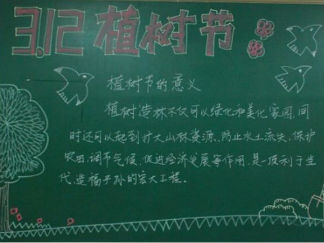 3.12植树节
植树节的意义
植树造林不仅可以绿化和美化家园,同
时还可以起到扩大山林资源、防止水土流失、保护
农田、调节气候、促进经济发展等作用,是一项利于当
代、造福子孙的宏大工程。